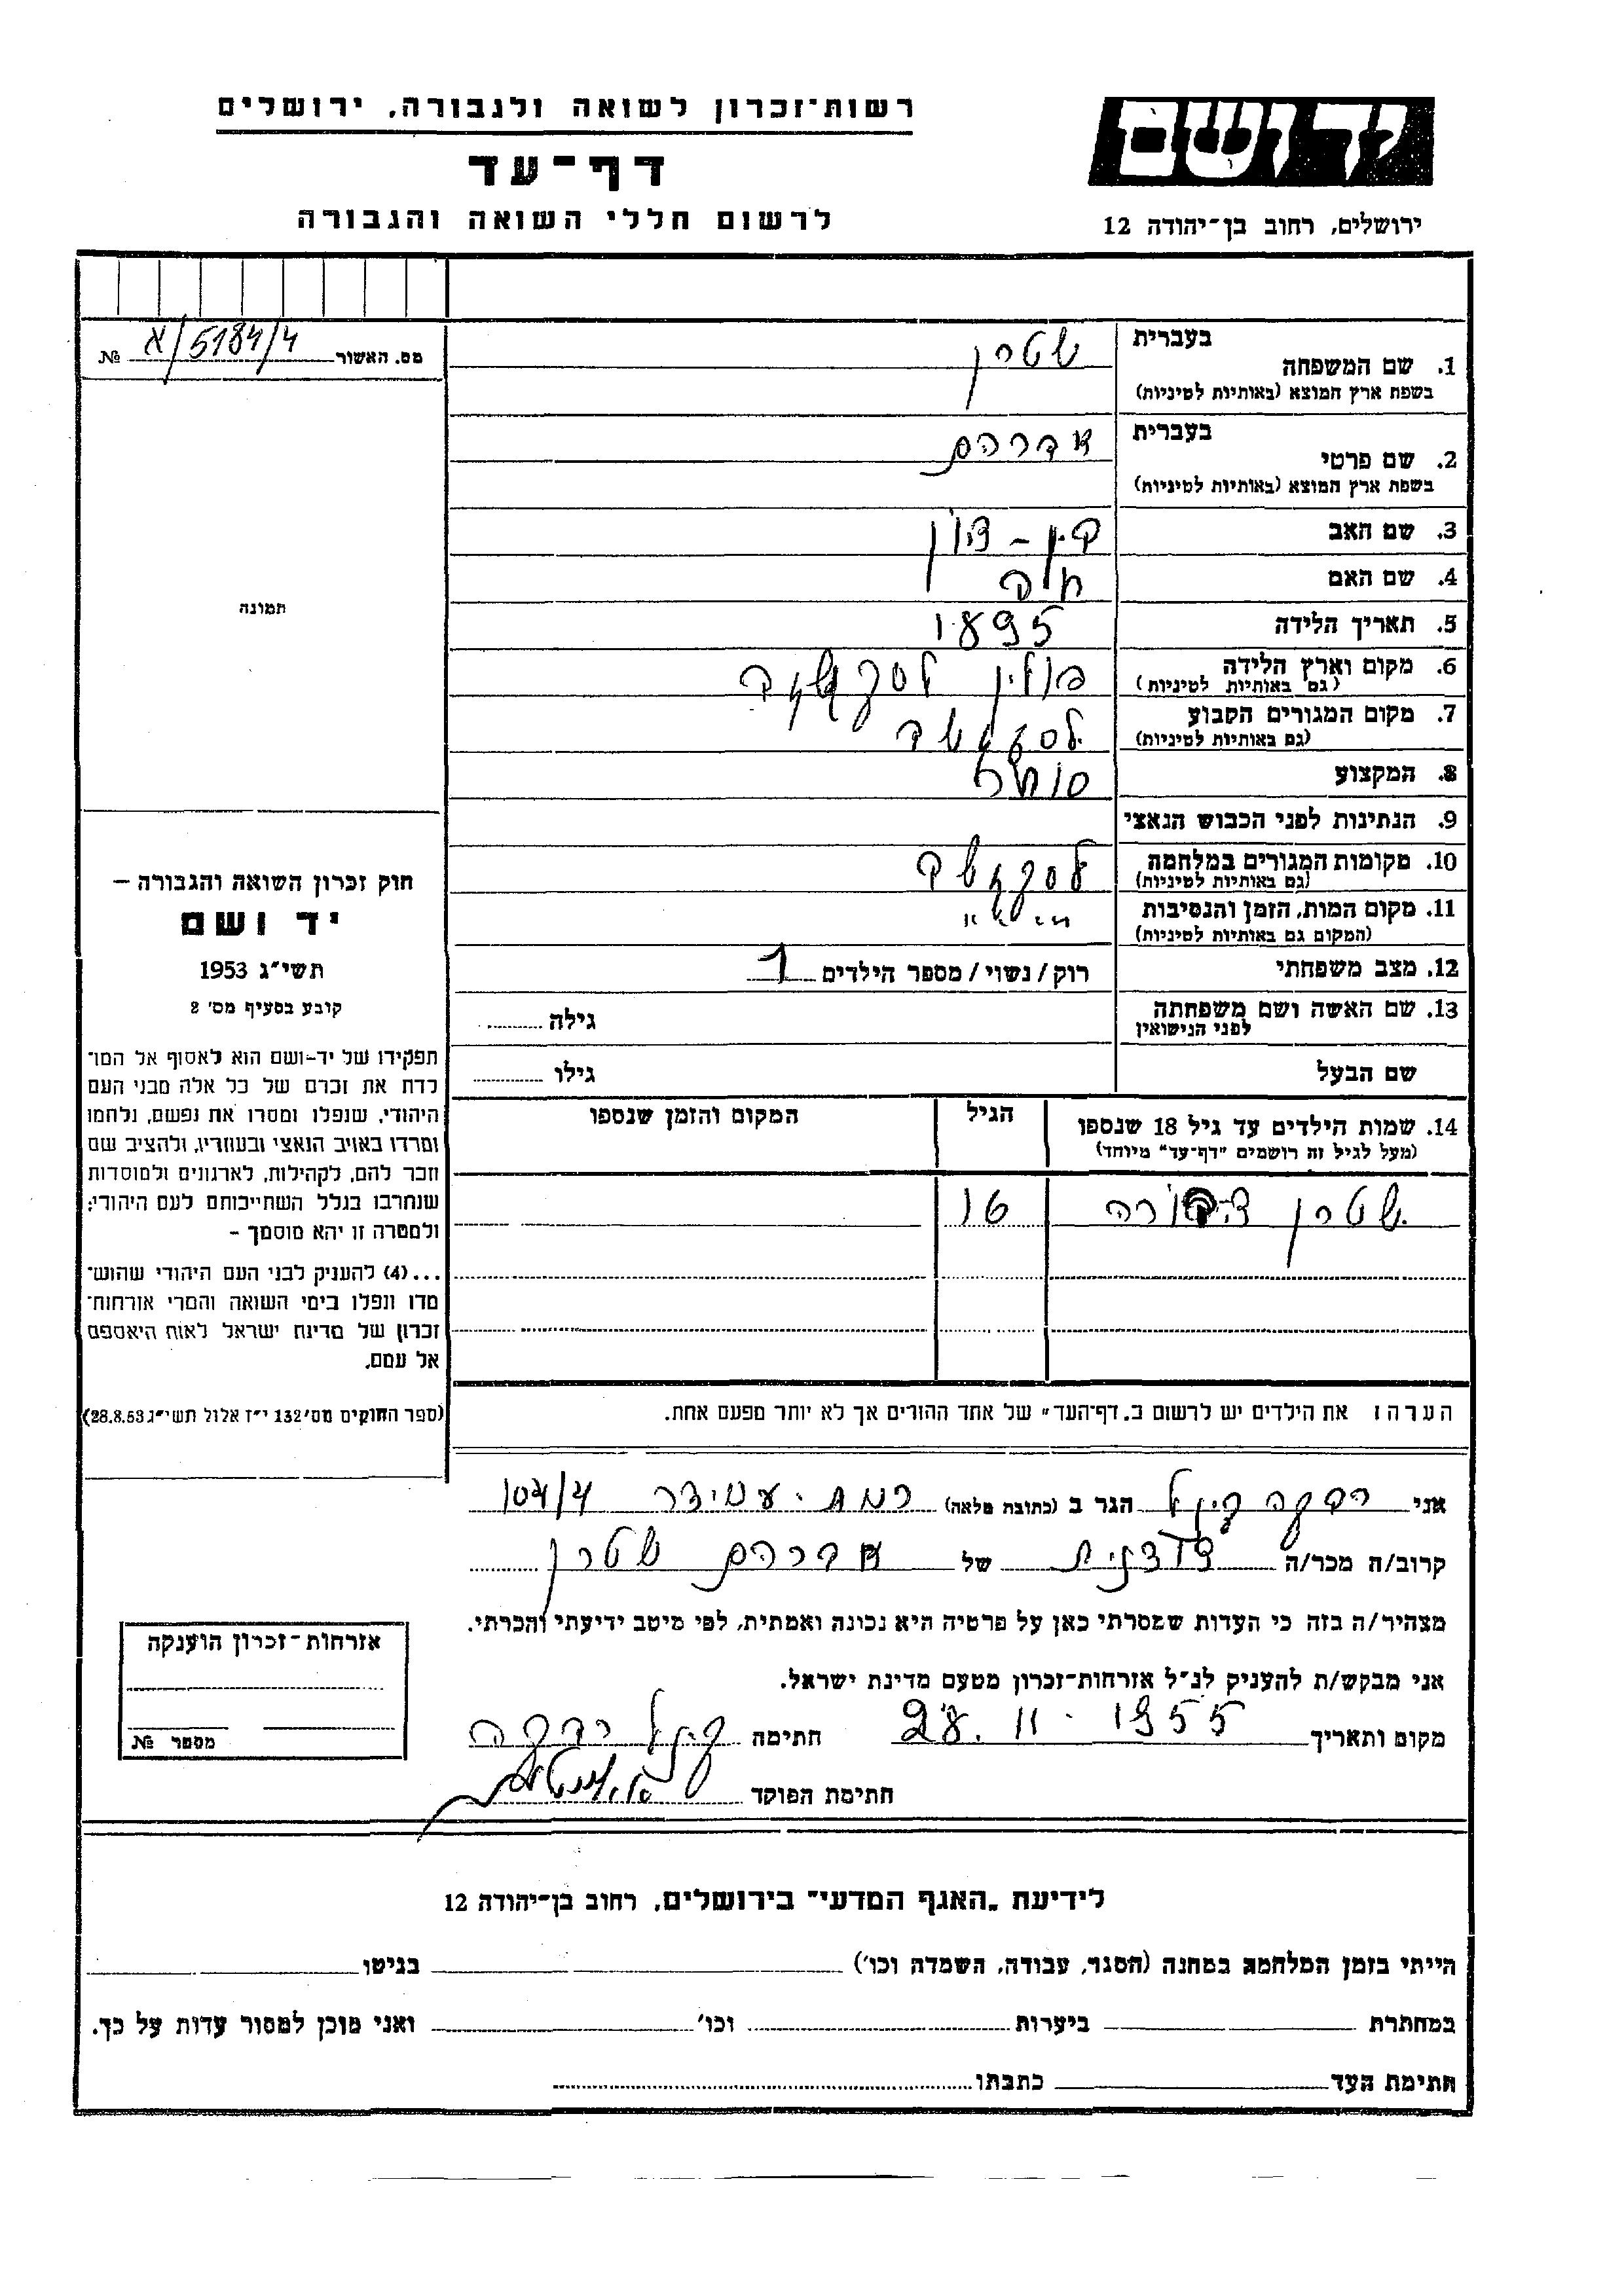 רשות־זכרון לשואה ולגבורה, ירושלים
דף־עד
לרשום חללי השואה והגבורה
יד ושם
ירושלים, רחוב בן־יהודה 12
מס. האשור א/5184/4 №
תמונה
חוק זכרון השואה והגבורה –
יד ושם
תשי״ג 1953
קובע בסעיף מס' 2
תפקידו של יד-ושם הוא לאסוף אל המו־
לדת את זכרם של כל אלה מבני העם
היהודי, שנפלו ומסרו את נפשם, נלחמו
ומרדו באויב הנאצי ובעוזריו, ולהציב שם
וזכר להם, לקהילות, לארגונים ולמוסדות
שנחרבו בגלל השתייכותם לעם היהודי;
ולמטרה זו יהא מוסמך –
...(4) להעניק לבני העם היהודי שהוש־
מדו ונפלו בימי השואה והמרי אזרחות־
זכרון של מדינת ישראל לאות היאספם
אל עמם.
(ספר החוקים מס׳ 132 י״ז אלול תשי״ג 28.8.53)
בעברית
1. שם המשפחה שטרן
בשפת ארץ המוצא (באותיות לטיניות)
בעברית
2. שם פרטי אברהם
בשפת ארץ המוצא (באותיות לטיניות)
3. שם האב בן - ציון
4. שם האם
5. תאריך הלידה 1895
6. מקום וארץ הלידה פולין
(גם באותיות לטיניות)
7. מקום המגורים הקבוע
(גם באותיות לטיניות)
8. המקצוע סוחר
9. הנתינות לפני הכבוש הנאצי
10. מקומות המגורים במלחמה
(גם באותיות לטיניות)
11. מקום המות, הזמן והנסיבות
(המקום גם באותיות לטיניות)
12. מצב משפחתי רוק / נשוי / מספר הילדים 1
13. שם האשה ושם משפחתה גילה
לפני הנישואין
שם הבעל גילו
14. שמות הילדים עד גיל 18 שנספו הגיל המקום והזמן שנספו
(מעל לגיל זה רושמים ״דף־עד״ מיוחד)
שטרן צפורה 16
הערה: את הילדים יש לרשום ב„דף־העד״ של אחד ההורים אך לא יותר מפעם אחת.
אני רבקה הגר ב (כתובת מלאה) רמת - עמידר 104/4
קרוב/ה מכר/ה של אברהם שטרן
מצהיר/ה בזה כי העדות שמסרתי כאן על פרטיה היא נכונה ואמתית, לפי מיטב ידיעתי והכרתי.
אני מבקש/ת להעניק לנ״ל אזרחות־זכרון מטעם מדינת ישראל.
מקום ותאריך 28. 11. 1955 חתימה רבקה
חתימת הפוקד
אזרחות־זכרון הוענקה
מספר №
לידיעת „האגף המדעי״ בירושלים, רחוב בן־יהודה 12
הייתי בזמן המלחמה במחנה (הסגר, עבודה, השמדה וכו') בגיטו
במחתרת ביערות וכו' ואני מוכן למסור עדות על כך.
חתימת העד כתבתו